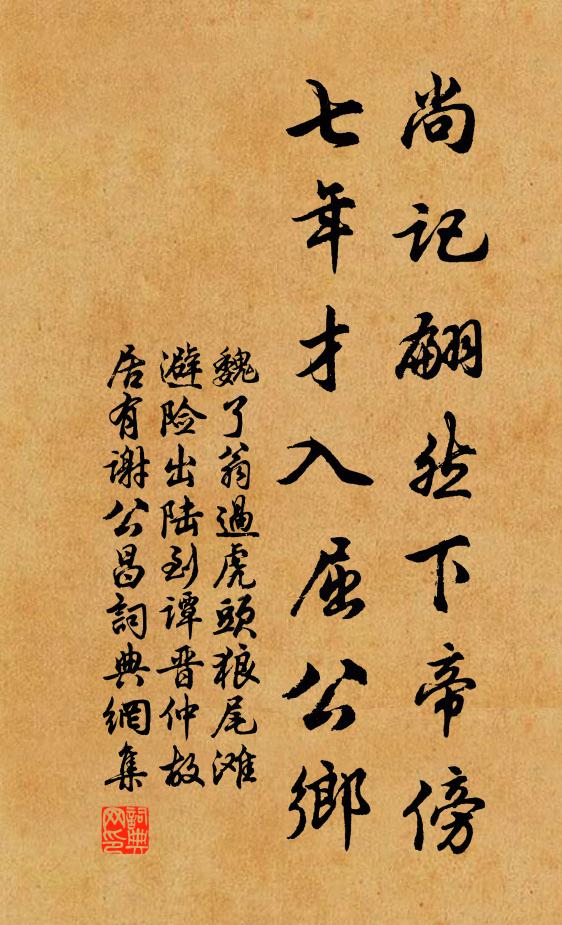 尚记翩然下帝傍
七年才入屈公鄉
魏了翁過虎頭狼尾滩
避险出陆到谭晋仲故
居有谢公昌詞典網集
詞典
网印